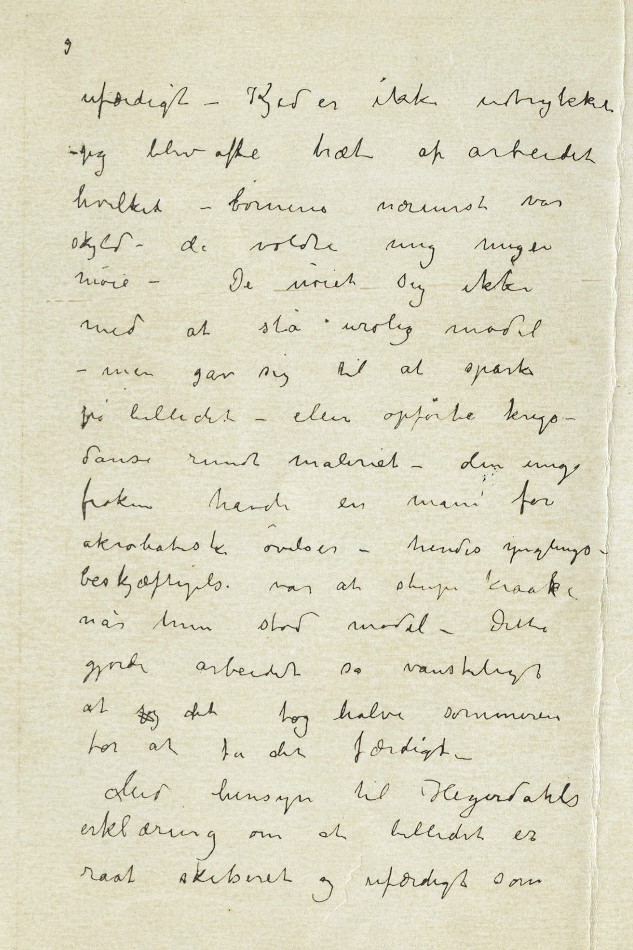 9
ufærdigt – Kjed er ikke udtrykket
– jeg blev ofte træt af arbeidet
hvilket – børnene nærmest var
skyld – de voldte mig megen
møie – De nøiet sig ikke
med at stå urolig model
– men gav sig til at sparke
på billedet – eller opførte krigs–
danse rundt maleriet – den unge
frøken havde en mani for
akrobatiske øvelser – hendes ynglings–
beskjæftigelse var at stupe kraake
når hun stod model – Dette
gjorde arbeidet så vanskeligt
at det tog halve sommeren
for at få det færdigt –
Med hensyn til Heyerdahls
erklæring om at billedet er
raat skitseret og ufærdigt som